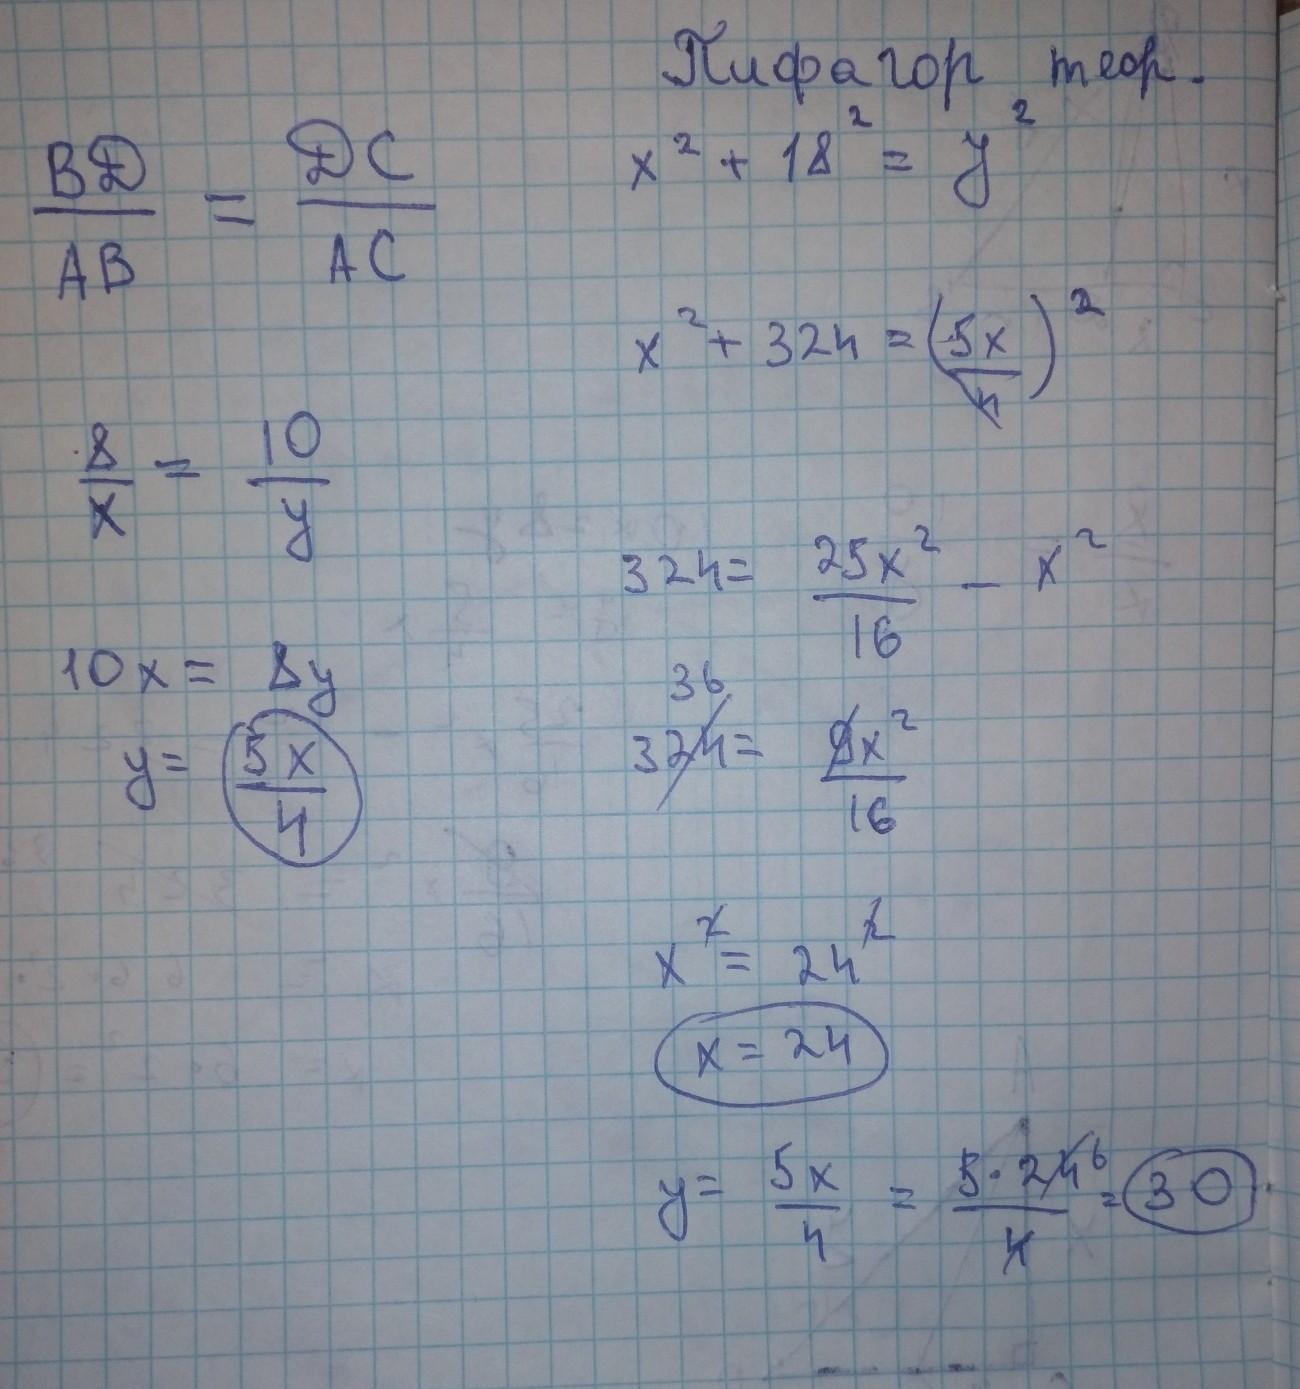 BD/AB = DC/AC
8/x = 10/y
10x = 8y
y = 5x/4
Пифагор теор.
x² + 18² = y²
x² + 324 = (5x/4)²
324 = 25x²/16 - x²
36
324 = 9x²/16
x² = 24²
x = 24
y = 5x/4 = 5·24 6/4 = 30